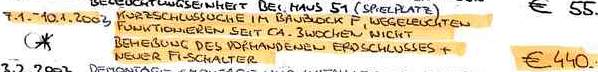 BELEUCHTUNGSEINHEIT BEI HAUS 51 (SPIELPLATZ) € 55.
7.1.-10.1.2002, KURZSCHLUSSUCHE IM BAUBLOCK F, WEGELEUCHTEN
FUNKTIONIEREN SEIT CA. 3 WOCHEN NICHT
BEHEBUNG DES VORHANDENEN ERDSCHLUSSES +
NEUER FI-SCHALTER € 440.-